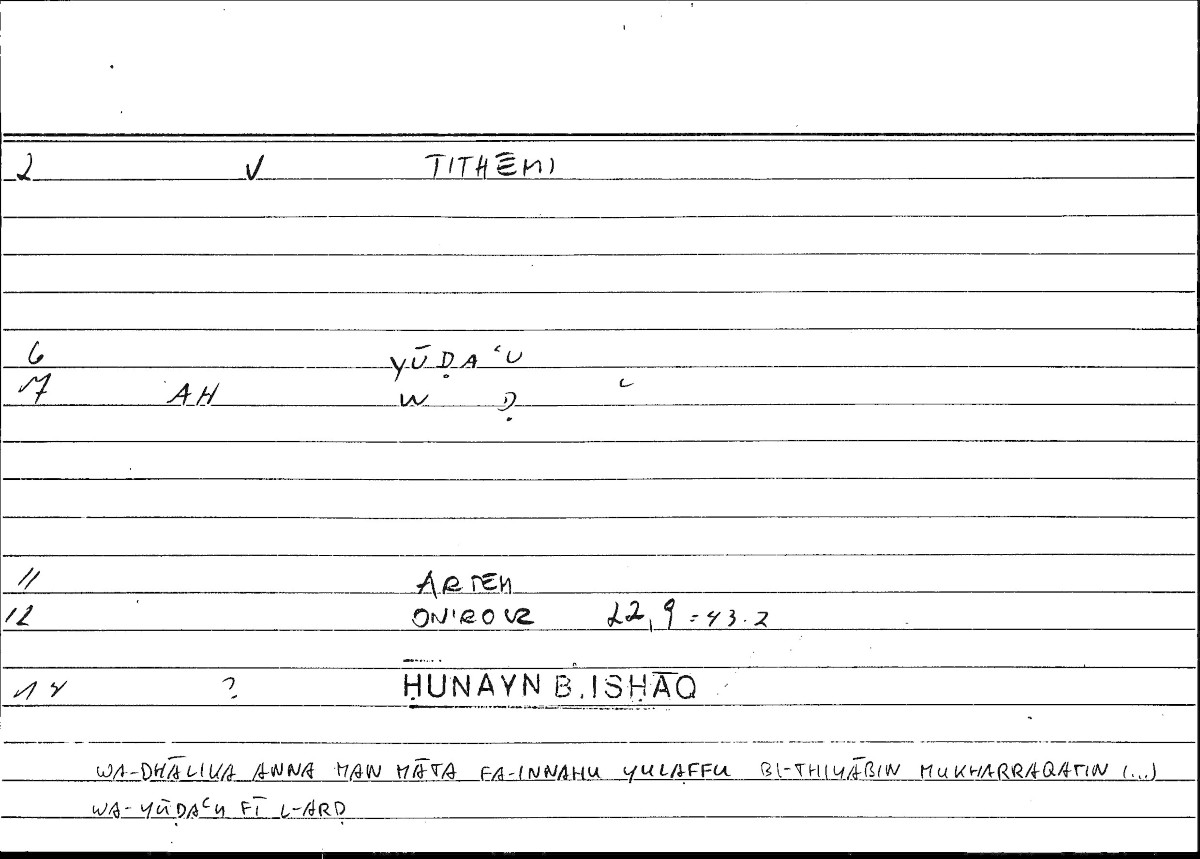 2 V TITHĒMI
6 YŪḌAʿU
7 AH W Ḍ ʿ
11 ARTEM
12 ONIROCR 22,9 = 43.2
14 ? ḤUNAYN B. ISḤĀQ
WA-DHĀLIKA ANNA MAN MĀTA FA-INNAHU YULAFFU BI-THIYĀBIN MUKHARRAQATIN (...)
WA-YŪḌAʿU FĪ L-ARḌ